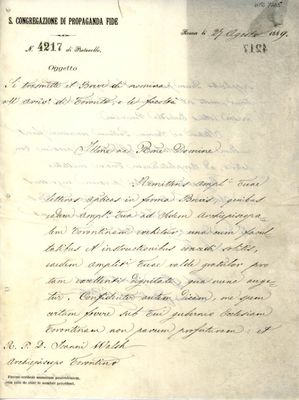 S. CONGREGAZIONE DI PROPAGANDA FIDE
N. 4217 di Protocollo
Roma li 27 Agosto 1889.
4217
Oggetto
Si trasmette il Breve di nomina
all' Arciv. di Toronto, e le facoltà
Illme ac Rme Domine
Remittens Ampl. Tuae
litteras apicas in forma Brevis, quibus
eadem Ampl. Tua ad Sedem Archiepiscopa-
lem Torontinam evehitur, una cum facul-
tatibus et instructionibus concedi solitis,
eidem Ampl. Tuae valde gratulor pro
tam excellenti dignitate qua nunc auge-
tur. Confidenter autem dicam, me spem
certam fovere sub Tui gubernio Ecclesiam
Torontinam non parum profuturam: et
R. P. D. Ioanni Walsh
Archiepiscopo Torontino